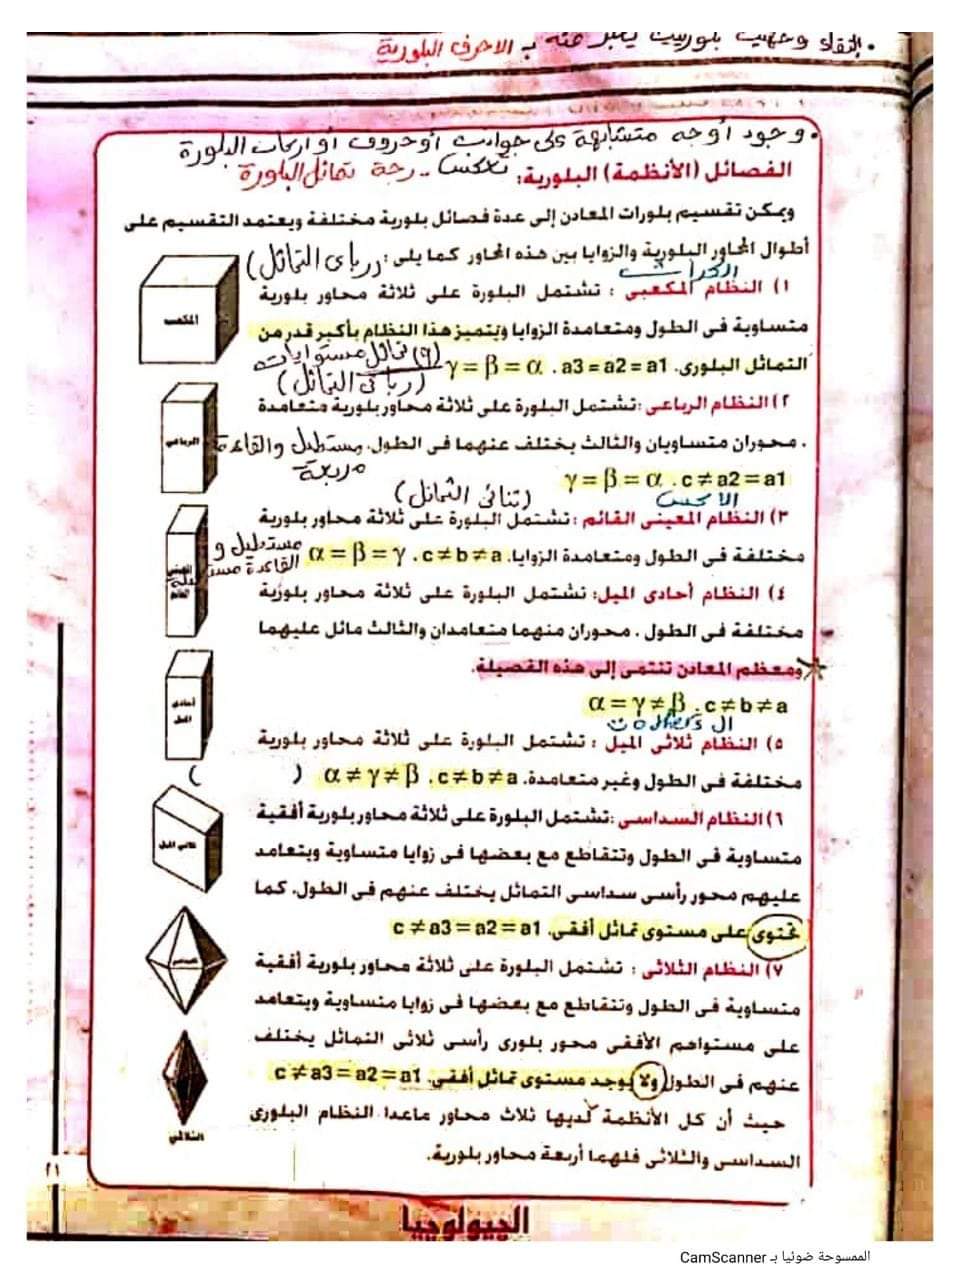 بالتقاء وجهين بلوريين يعبر عنه بـ الاحرف البلورية
وجود أوجه متشابهة على جوانب أو حروف أو اركان البلورة
تعكس درجة تماثل البلورة
الفصائل (الأنظمة) البلورية:
ويمكن تقسيم بلورات المعادن إلى عدة فصائل بلورية مختلفة ويعتمد التقسيم على
أطوال المحاور البلورية والزوايا بين هذه المحاور كما يلى: (رباى التماثل)
١) النظام المكعبى : تشتمل البلورة على ثلاثة محاور بلورية
متساوية فى الطول ومتعامدة الزوايا ويتميز هذا النظام بأكبر قدر من
التماثل البلورى. a3 = a2 = a1 . γ = β = α (٩) تماثل مستويات
(رباى التماثل)
المكعب
٢) النظام الرباعى : تشتمل البلورة على ثلاثة محاور بلورية متعامدة
. محوران متساويان والثالث يختلف عنهما فى الطول. مستطيل والقاعدة
مربعة
γ = β = α . c ≠ a2 = a1
الرباعي
(ثنائى التماثل)
٣) النظام المعينى القائم : تشتمل البلورة على ثلاثة محاور بلورية
مختلفة فى الطول ومتعامدة الزوايا. α = β = γ . c ≠ b ≠ a
مستطيل و
القاعدة مستطيلة
المعيني
القائم
٤) النظام أحادى الميل: تشتمل البلورة على ثلاثة محاور بلورية
مختلفة فى الطول . محوران منهما متعامدان والثالث مائل عليهما
ومعظم المعادن تنتمى إلى هذه الفصيلة.
α = γ ≠ β . c ≠ b ≠ a
أحادى
الميل
٥) النظام ثلاثى الميل : تشتمل البلورة على ثلاثة محاور بلورية
مختلفة فى الطول وغير متعامدة. α ≠ γ ≠ β . c ≠ b ≠ a ( )
ثلاثي الميل
٦) النظام السداسى : تشتمل البلورة على ثلاثة محاور بلورية أفقية
متساوية فى الطول وتتقاطع مع بعضها فى زوايا متساوية ويتعامد
عليهم محور رأسى سداسى التماثل يختلف عنهم فى الطول. كما
تحتوى على مستوى تماثل أفقى. c ≠ a3 = a2 = a1
السداسي
٧) النظام الثلاثى : تشتمل البلورة على ثلاثة محاور بلورية أفقية
متساوية فى الطول وتتقاطع مع بعضها فى زوايا متساوية ويتعامد
على مستواهم الأفقى محور بلورى رأسى ثلاثى التماثل يختلف
عنهم فى الطول ولا يوجد مستوى تماثل أفقى. c ≠ a3 = a2 = a1
الثلاثي
حيث أن كل الأنظمة لديها ثلاث محاور ماعدا النظام البلورى
السداسى والثلاثى فلهما أربعة محاور بلورية.
٢١
الجيولوجيا
الممسوحة ضوئيا بـ CamScanner